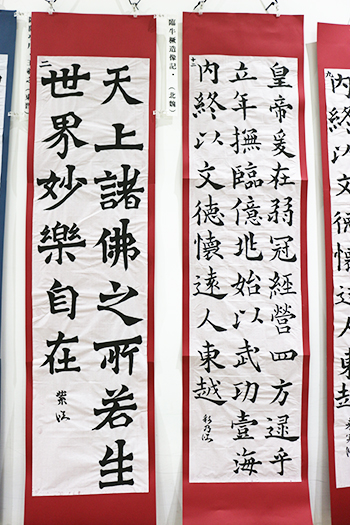 九
内終以文德懷遠人東越
皇帝爰在弱冠經營四方逮乎
立年撫臨億兆始以武功壹海
内終以文德懷遠人東越
臨牛橛造像記．（北魏）
天上諸佛之所若生
世界妙樂自在
二